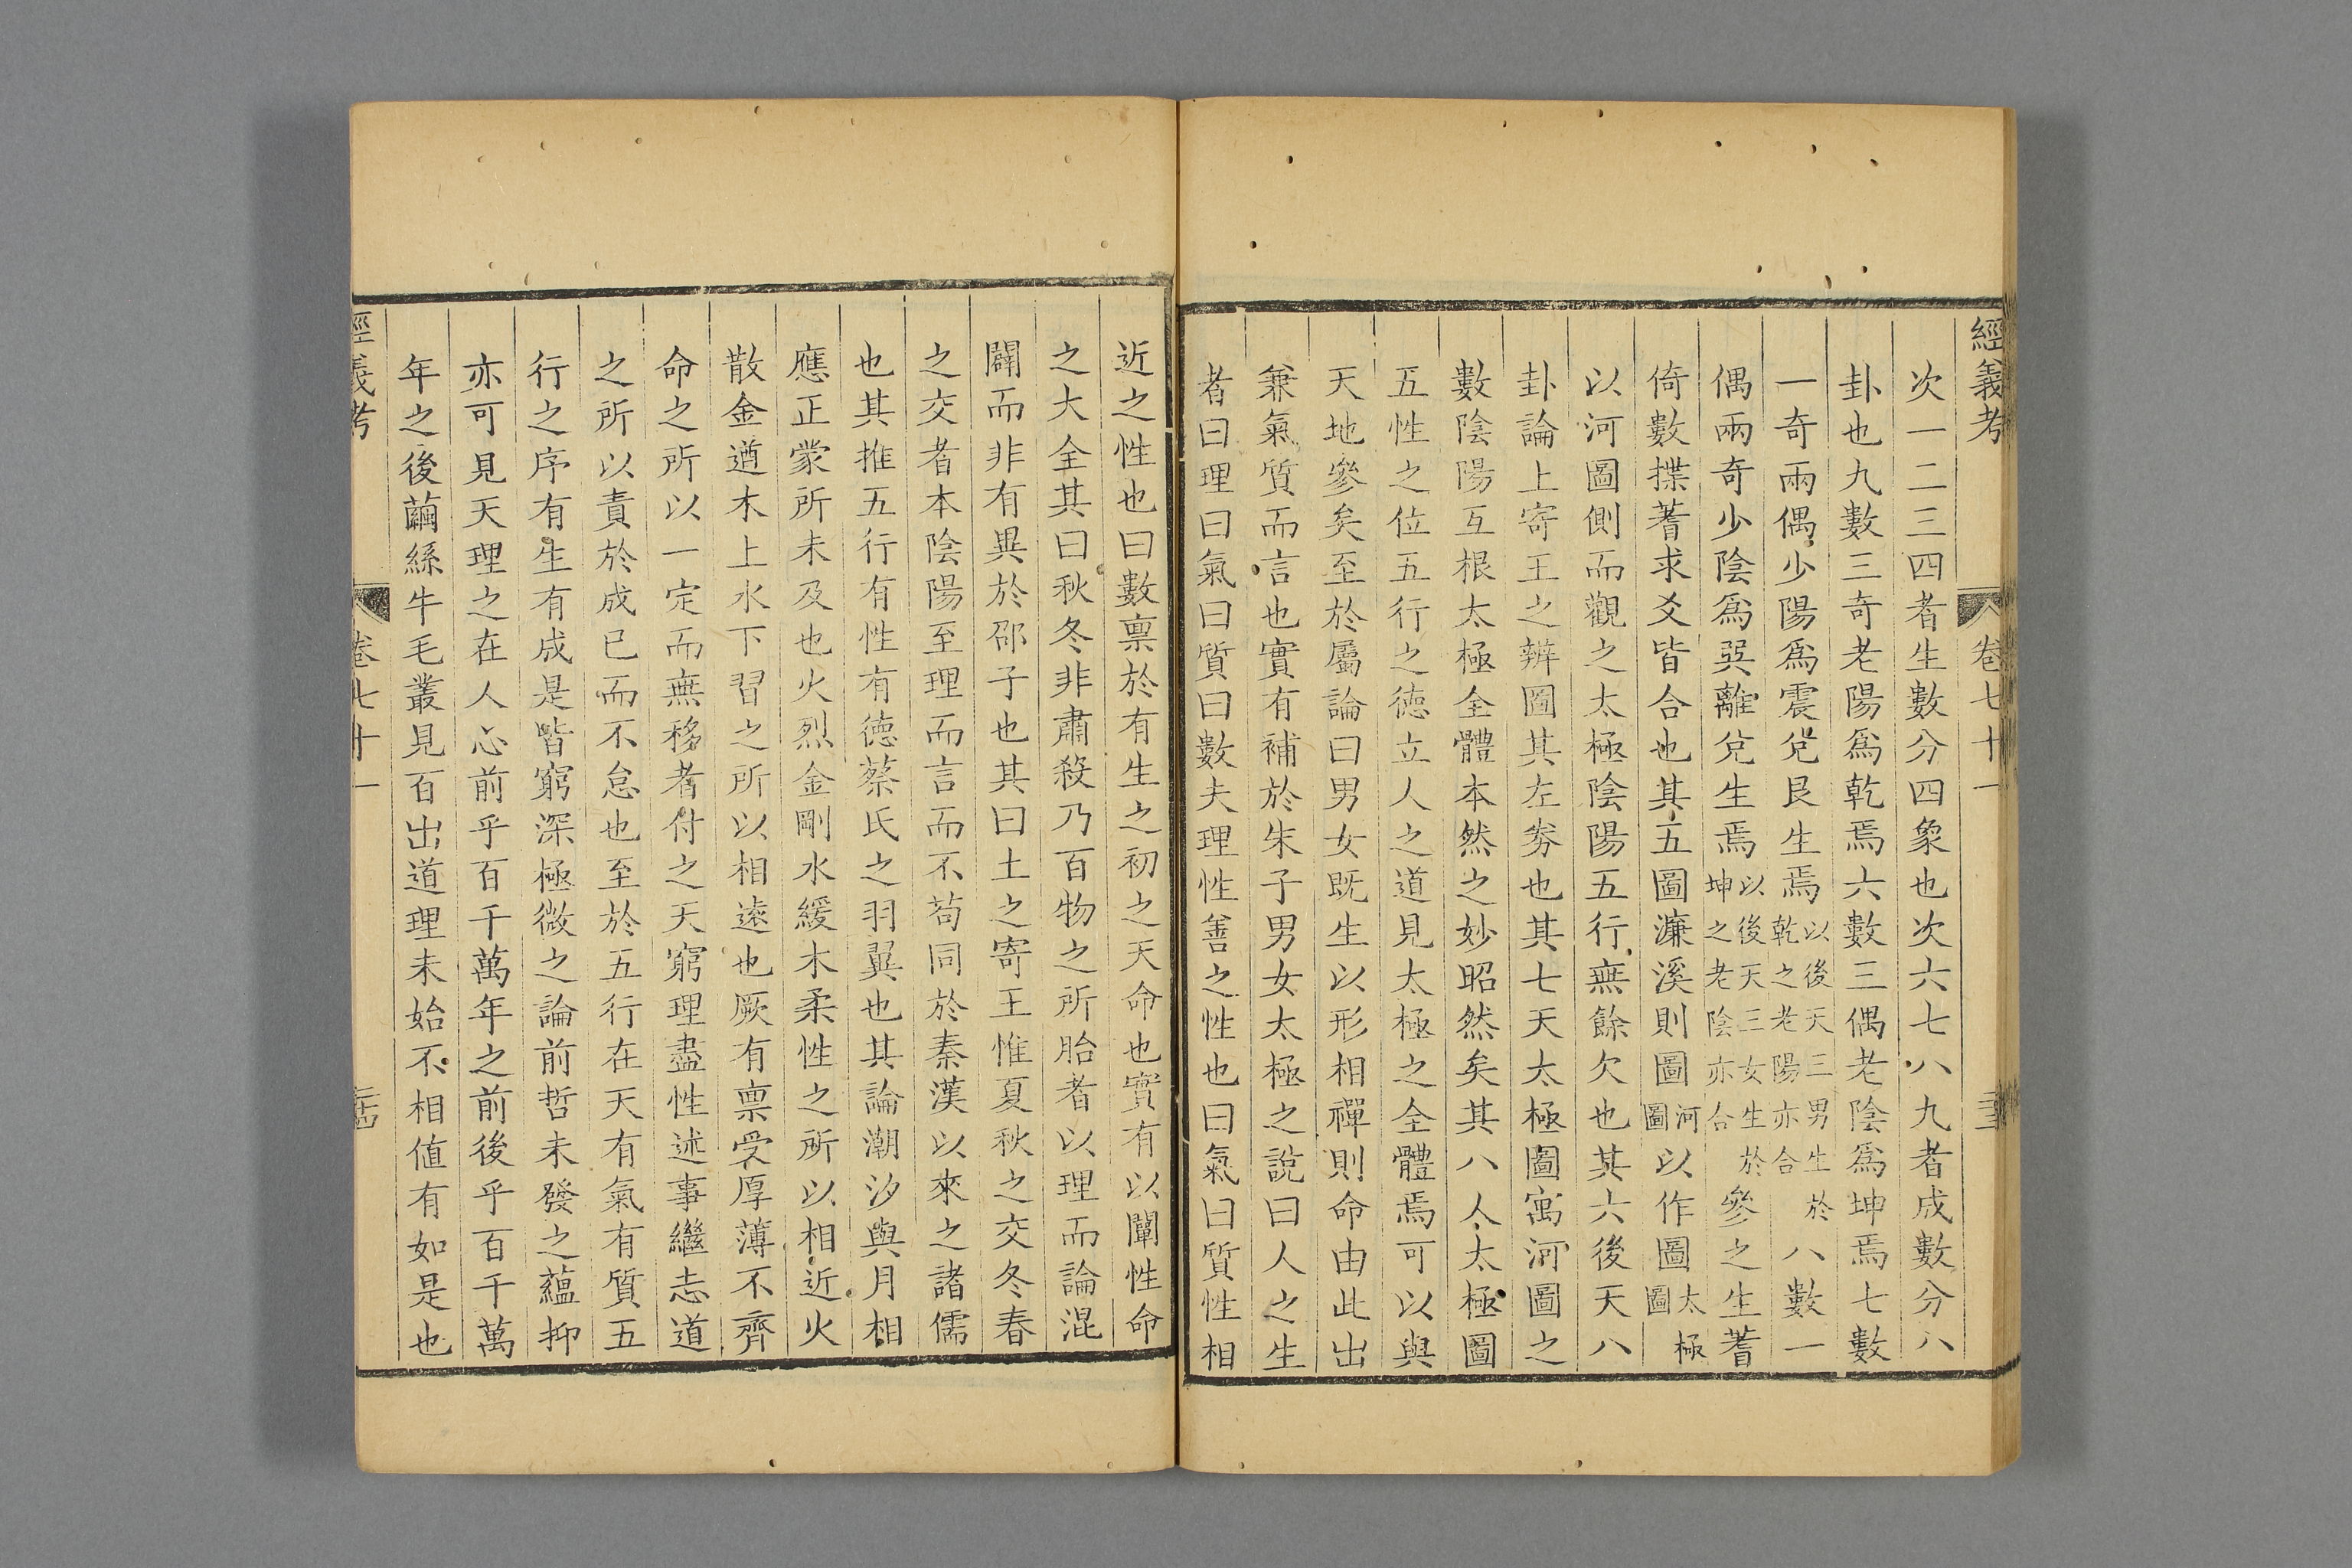 經義考 卷七十一
次一二三四者生數分四象也次六七八九者成數分八
卦也九數三奇老陽爲乾焉六數三偶老陰爲坤焉七數
一奇兩偶少陽爲震兊艮生焉以後天三男生於乾之老陽亦合八數一
偶兩奇少陰爲巽離兊生焉以後天三女生於坤之老陰亦合參之生蓍
倚數揲蓍求爻皆合也其五圖濂溪則圖河圖以作圖太極圖
以河圖側而觀之太極陰陽五行無餘欠也其六後天八
卦論上寄王之辨圖其左旁也其七天太極圖寓河圖之
數陰陽互根太極全體本然之妙昭然矣其八人太極圖
五性之位五行之德立人之道見太極之全體焉可以與
天地參矣至於屬論曰男女既生以形相禪則命由此出
兼氣質而言也實有補於朱子男女太極之說曰人之生
者曰理曰氣曰質曰數夫理性善之性也曰氣曰質性相
近之性也曰數禀於有生之初之天命也實有以闡性命
之大全其曰秋冬非肅殺乃百物之所胎者以理而論混
闢而非有異於邵子也其曰土之寄王惟夏秋之交冬春
之交者本陰陽至理而言而不苟同於秦漢以來之諸儒
也其推五行有性有德蔡氏之羽翼也其論潮汐與月相
應正蒙所未及也火烈金剛水緩木柔性之所以相近火
散金遒木上水下習之所以相遠也厥有禀受厚薄不齊
命之所以一定而無移者付之天窮理盡性述事繼志道
之所以責於成已而不怠也至於五行在天有氣有質五
行之序有生有成是皆窮深極微之論前哲未發之蘊抑
亦可見天理之在人心前乎百千萬年之前後乎百千萬
年之後繭絲牛毛叢見百出道理未始不相値有如是也
經義考 卷七十一